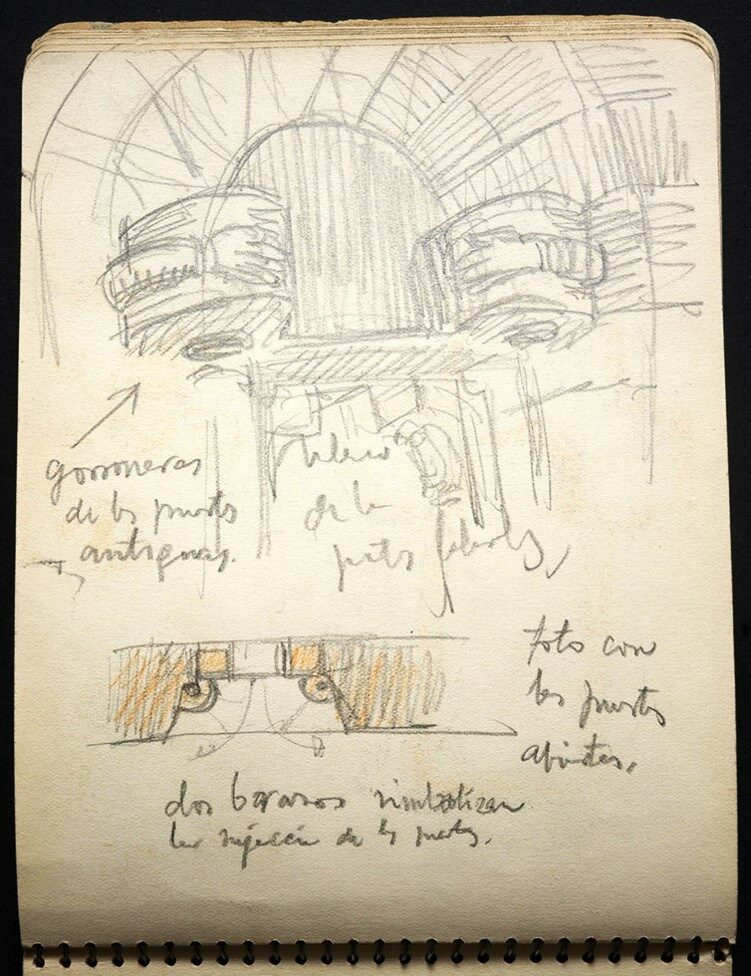 gorroneras
de ls puertas
antiguas.
de la
foto con
las puertas
abiertas.
dos brazos simbolizan
la sujeción de ls puertas.